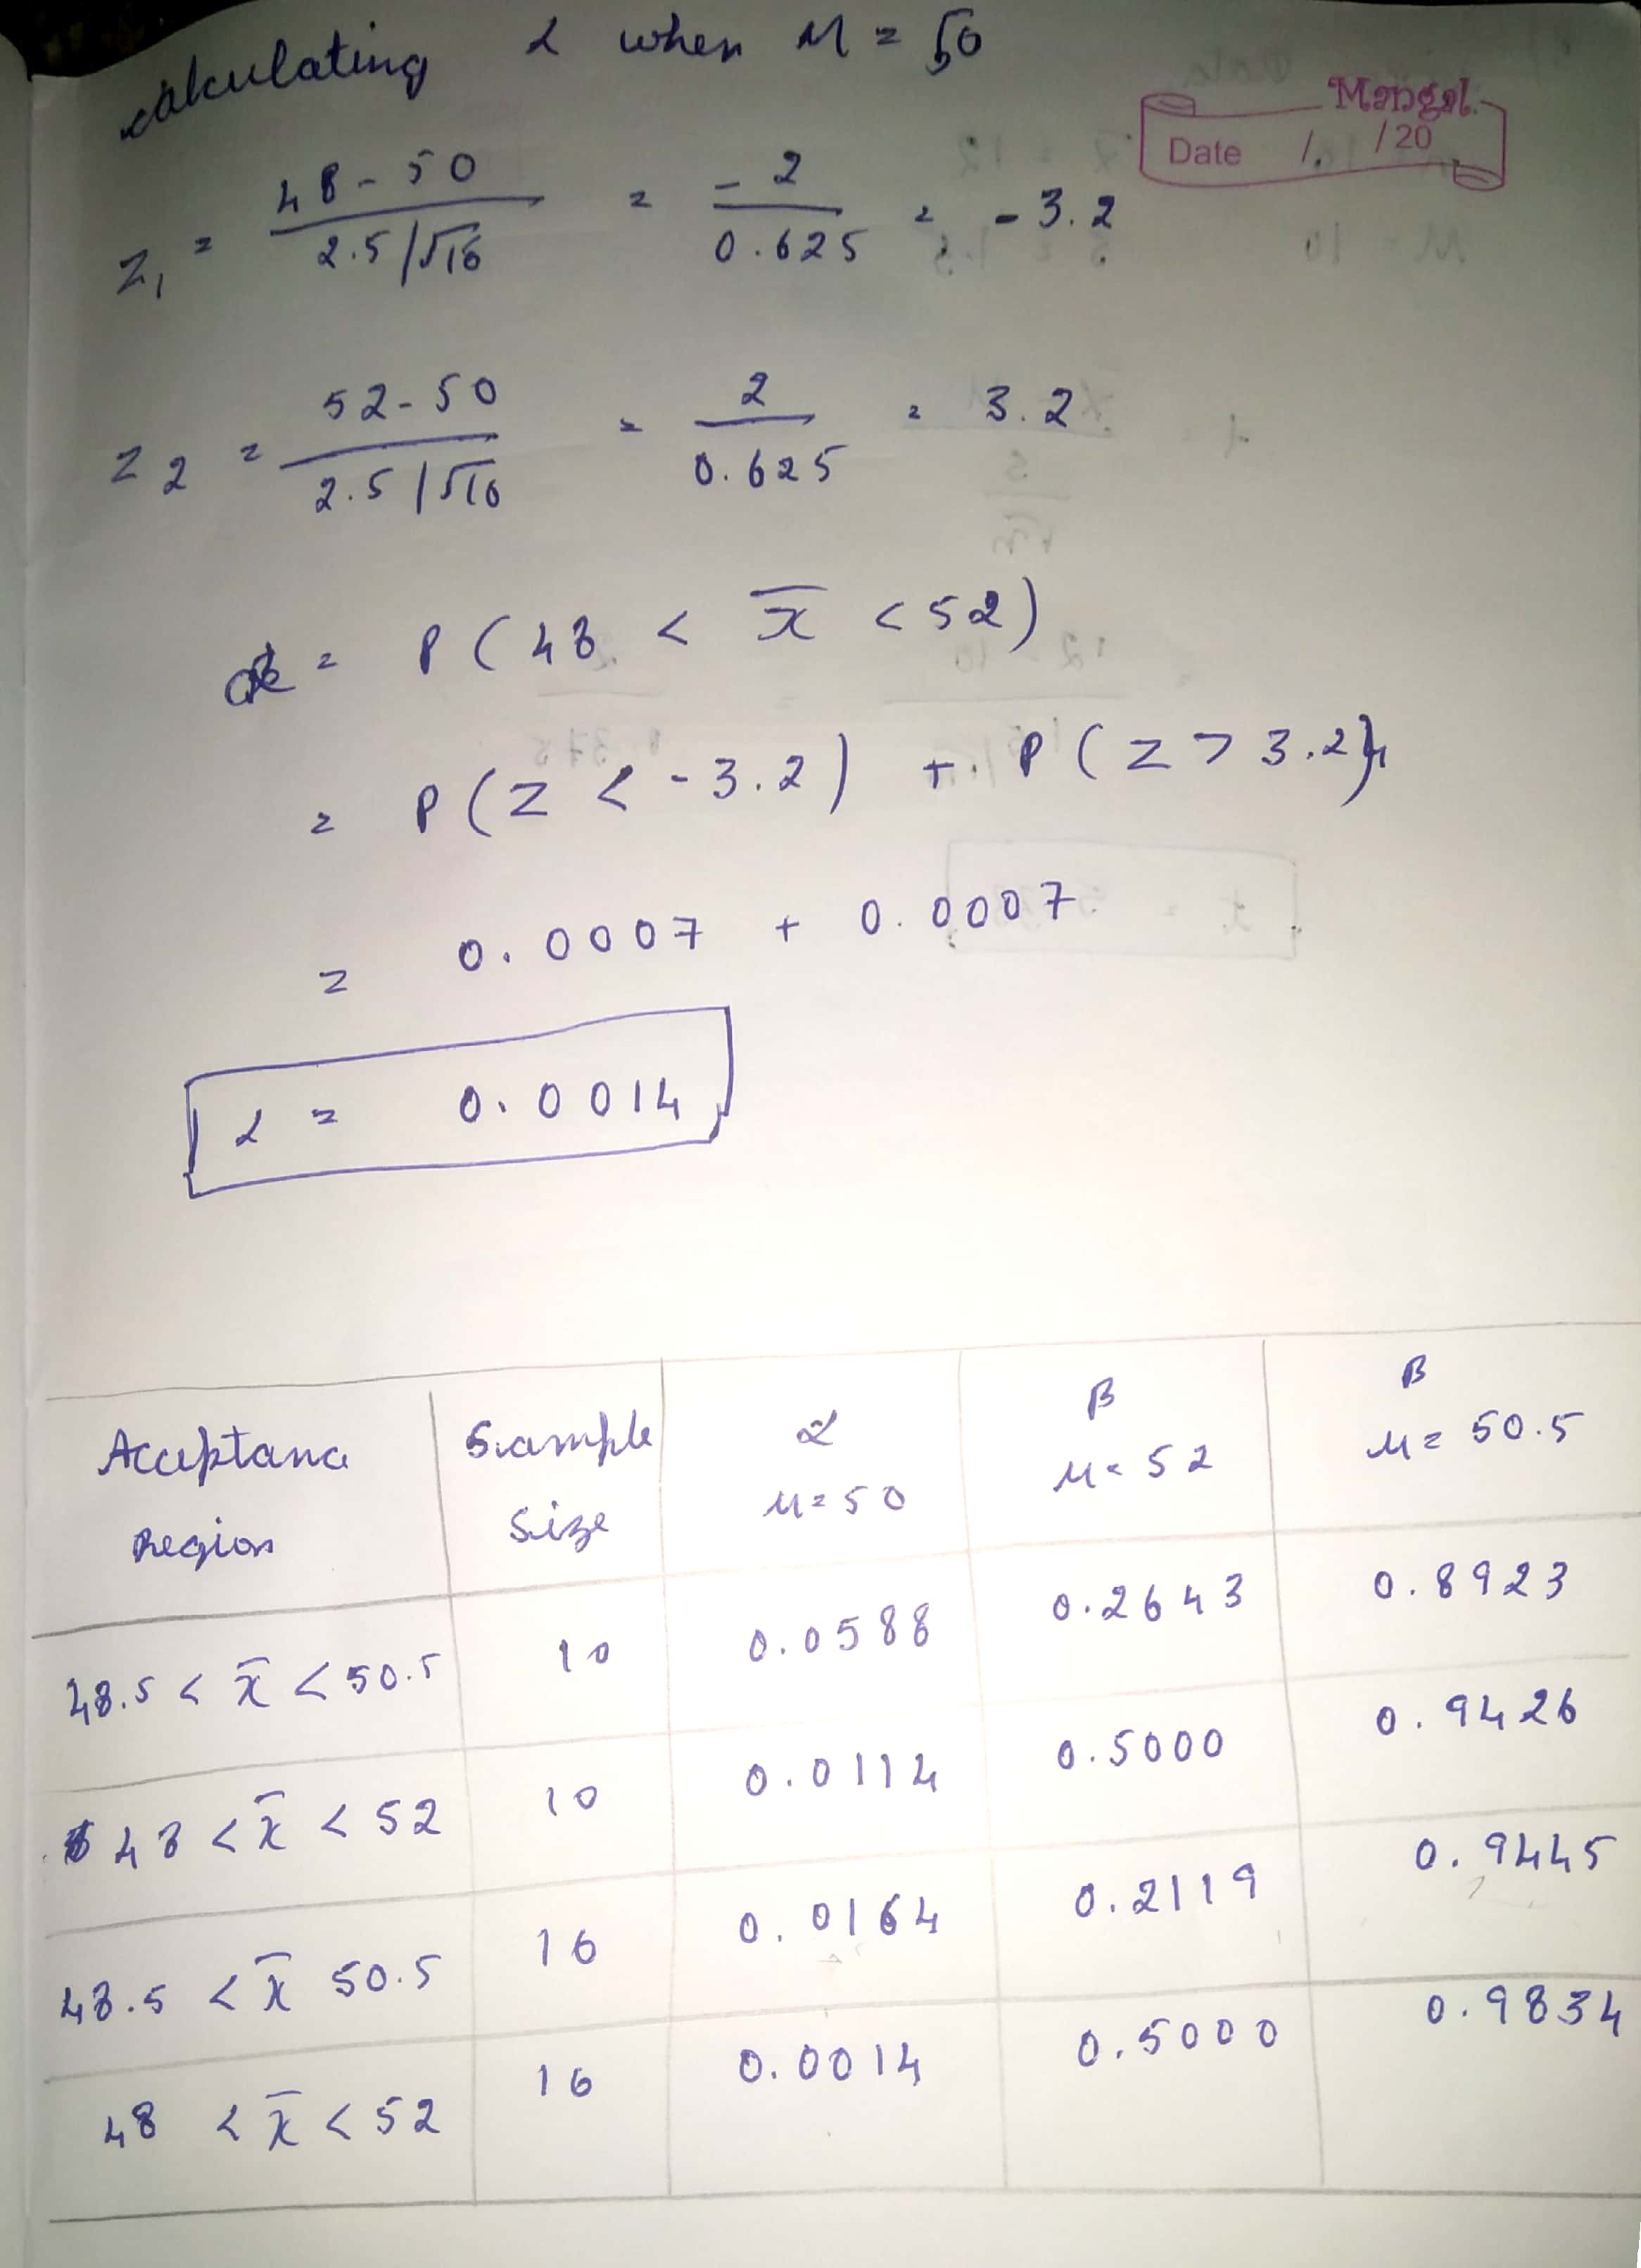 calculating α when μ = 50
Mangal
Date / /20
z₁ = (48-50)/(2.5/√16) = -2/0.625 = -3.2
z2 = (52-50)/(2.5/√16) = 2/0.625 = 3.2
α = P(48 < x̄ < 52)
= P(z < -3.2) + P(z > 3.2)
= 0.0007 + 0.0007
α = 0.0014
Acceptance Region | Sample Size | α μ=50 | β μ=52 | β μ=50.5
48.5 < x̄ < 50.5 | 10 | 0.0588 | 0.2643 | 0.8923
48 < x̄ < 52 | 10 | 0.0114 | 0.5000 | 0.9426
48.5 < x̄ 50.5 | 16 | 0.0164 | 0.2119 | 0.9445
48 < x̄ < 52 | 16 | 0.0014 | 0.5000 | 0.9834